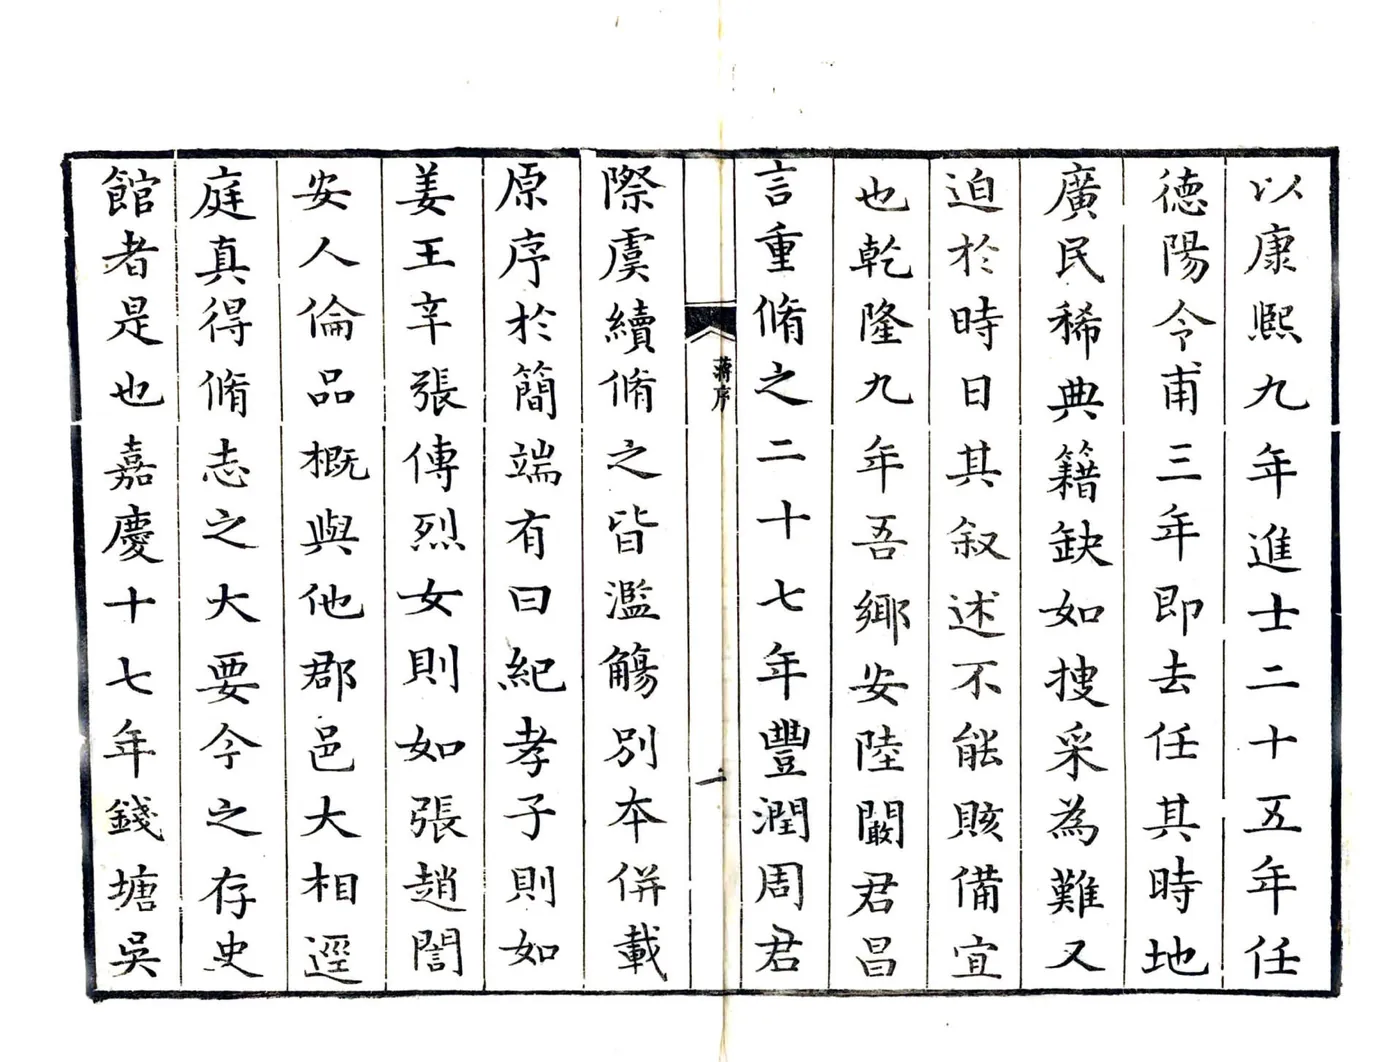 以康熙九年進士二十五年任
德陽令甫三年即去任其時地
廣民稀典籍缺如搜采為難又
迫於時日其叙述不能賅備宜
也乾隆九年吾鄉安陸闞君昌
言重脩之二十七年豐潤周君
蔣序
二
際虞續脩之皆濫觴別本併載
原序於簡端有曰紀孝子則如
姜王辛張傳烈女則如張趙誾
安人倫品概與他郡邑大相逕
庭真得脩志之大要今之存史
館者是也嘉慶十七年錢塘吳